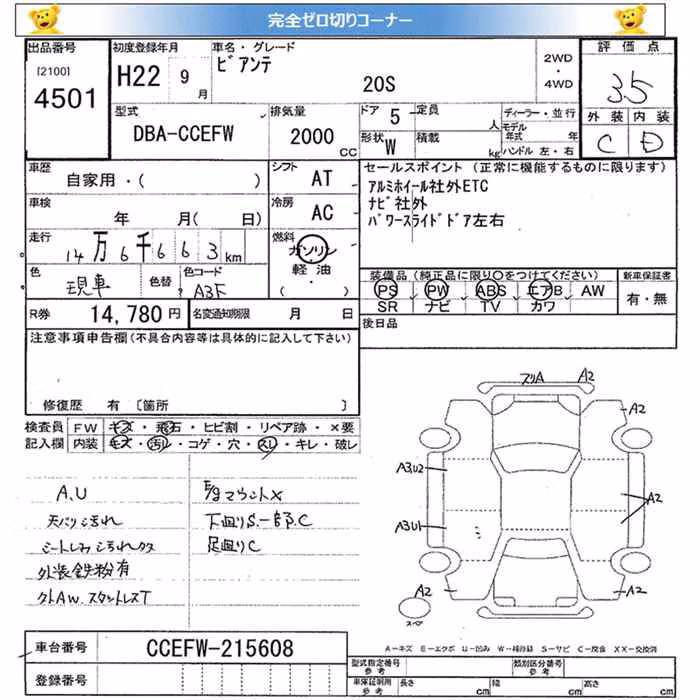 完全ゼロ切りコーナー
出品番号
[2100]
4501
初度登録年月
H22 9月
車名・グレード
ビアンテ
20S
2WD
・
4WD
評価点
3.5
外装 内装
C D
型式
DBA-CCEFW
排気量
2000
CC
ドア 5
定員
人
形状 W
積載
kg
ディーラー・並行
モデル年式 年
ハンドル 左・右
車歴
自家用・( )
シフト
AT
セールスポイント (正常に機能するものに限ります)
アルミホイール社外ETC
ナビ社外
パワースライドドア左右
車検
年 月( 日)
冷房
AC
走行
14万6千663km
燃料
ガソリン
軽油
・
( )
色
現車
色替
色コード
A3F
装備品(純正品に限り○をつけてください)
PS PW ABS エアB AW
SR ナビ TV カワ
新車保証書
有・無
R券
14,780円
名変通知期限 月 日
後日品
注意事項申告欄(不具合内容等は具体的に記入して下さい)
修復歴 有 〔箇所 〕
検査員
記入欄
FW キズ・飛石・ヒビ割・リペア跡・×要
内装 キズ・汚レ・コゲ・穴・スレ・キレ・破レ
A.U
天バリ汚れ
シートしみ汚れクタ
外装鉄粉有
クトAW.スタットレスT
E/gマウント×
下廻りS.一部C
足廻りC
スリA A2
A2
A3,U2
A2
A3U1
A2
A2
スペア
A-キズ E-エクボ U-凹み W-補修跡 S-サビ C-腐食 XX-交換済
車台番号
CCEFW-215608
登録番号
型式指定番号
参考
類別区分番号
参考
車庫証明用
参考
長さ cm 幅 cm 高さ cm